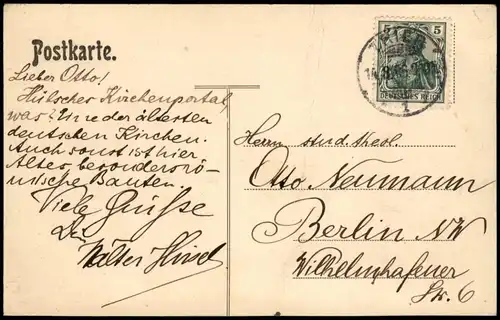 Postkarte.
Lieber Otto!
Hübsches Kirchenportal,
was? In e der ältesten
deutschen Kirchen.
Auch sonst ist hier
Altes, besonders rö-
mische Bauten.
Viele Grüsse
Dein
Walter Hirsch
5 5
DEUTSCHES REICH
TRIER
1
Herrn stud. theol.
Otto Neumann
Berlin NW
Wilhelmshafener
Str. 6